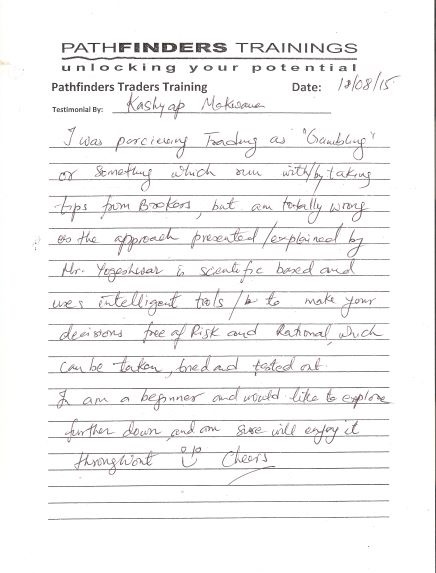 PATHFINDERS TRAININGS
unlocking your potential
Pathfinders Traders Training Date: 18/08/15
Testimonial By: Kashyap Makwana
I was parcieving Trading as "Gambling"
or something which run with/by taking
tips from Brokers, but am totally wrong
as the approach presented/explained by
Mr. Yogeshwar is scentific based and
uses intelligent tools / to make your
decisions free of Risk and Rational, which
can be taken, tried and tested out.
I am a beginner and would like to explore
further down, and am sure will enjoy it
throughout Cheers